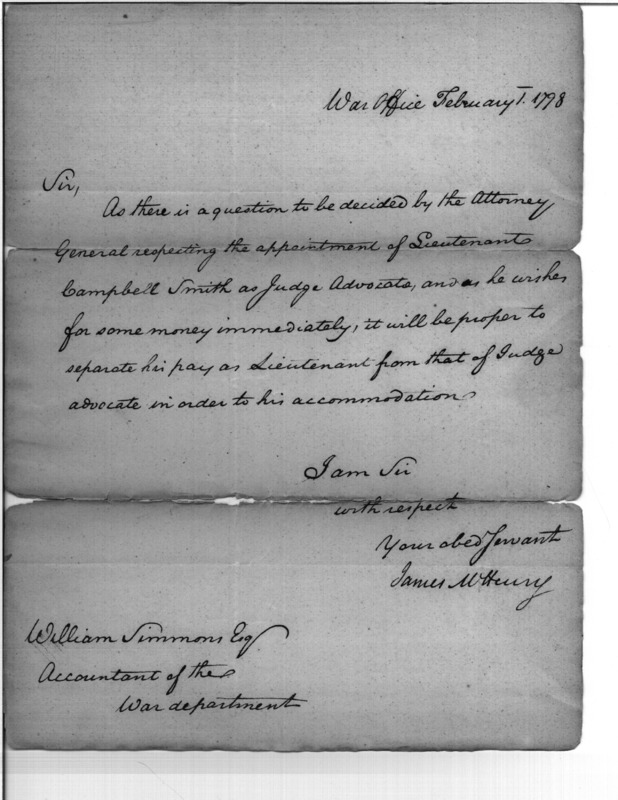 War Office February 1. 1798
Sir,
As there is a question to be decided by the Attorney
General respecting the appointment of Lieutenant
Campbell Smith as Judge Advocate, and as he wishes
for some money immediately, it will be proper to
separate his pay as Lieutenant from that of Judge
advocate in order to his accommodation
I am Sir
with respect
Your obed Servant
James McHenry
William Simmons Esq.
Accountant of the
War department